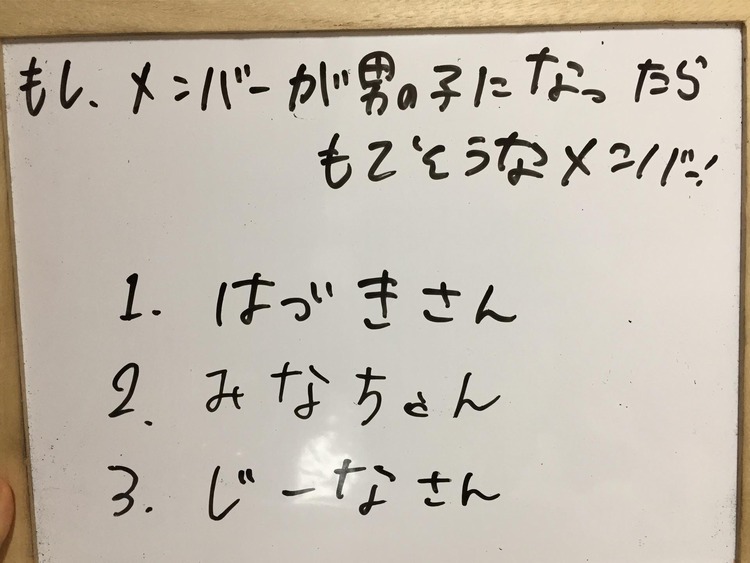 もし、メンバーが男の子になったら
もてそうなメンバー!
1. はづきさん
2. みなちゃん
3. じーなさん